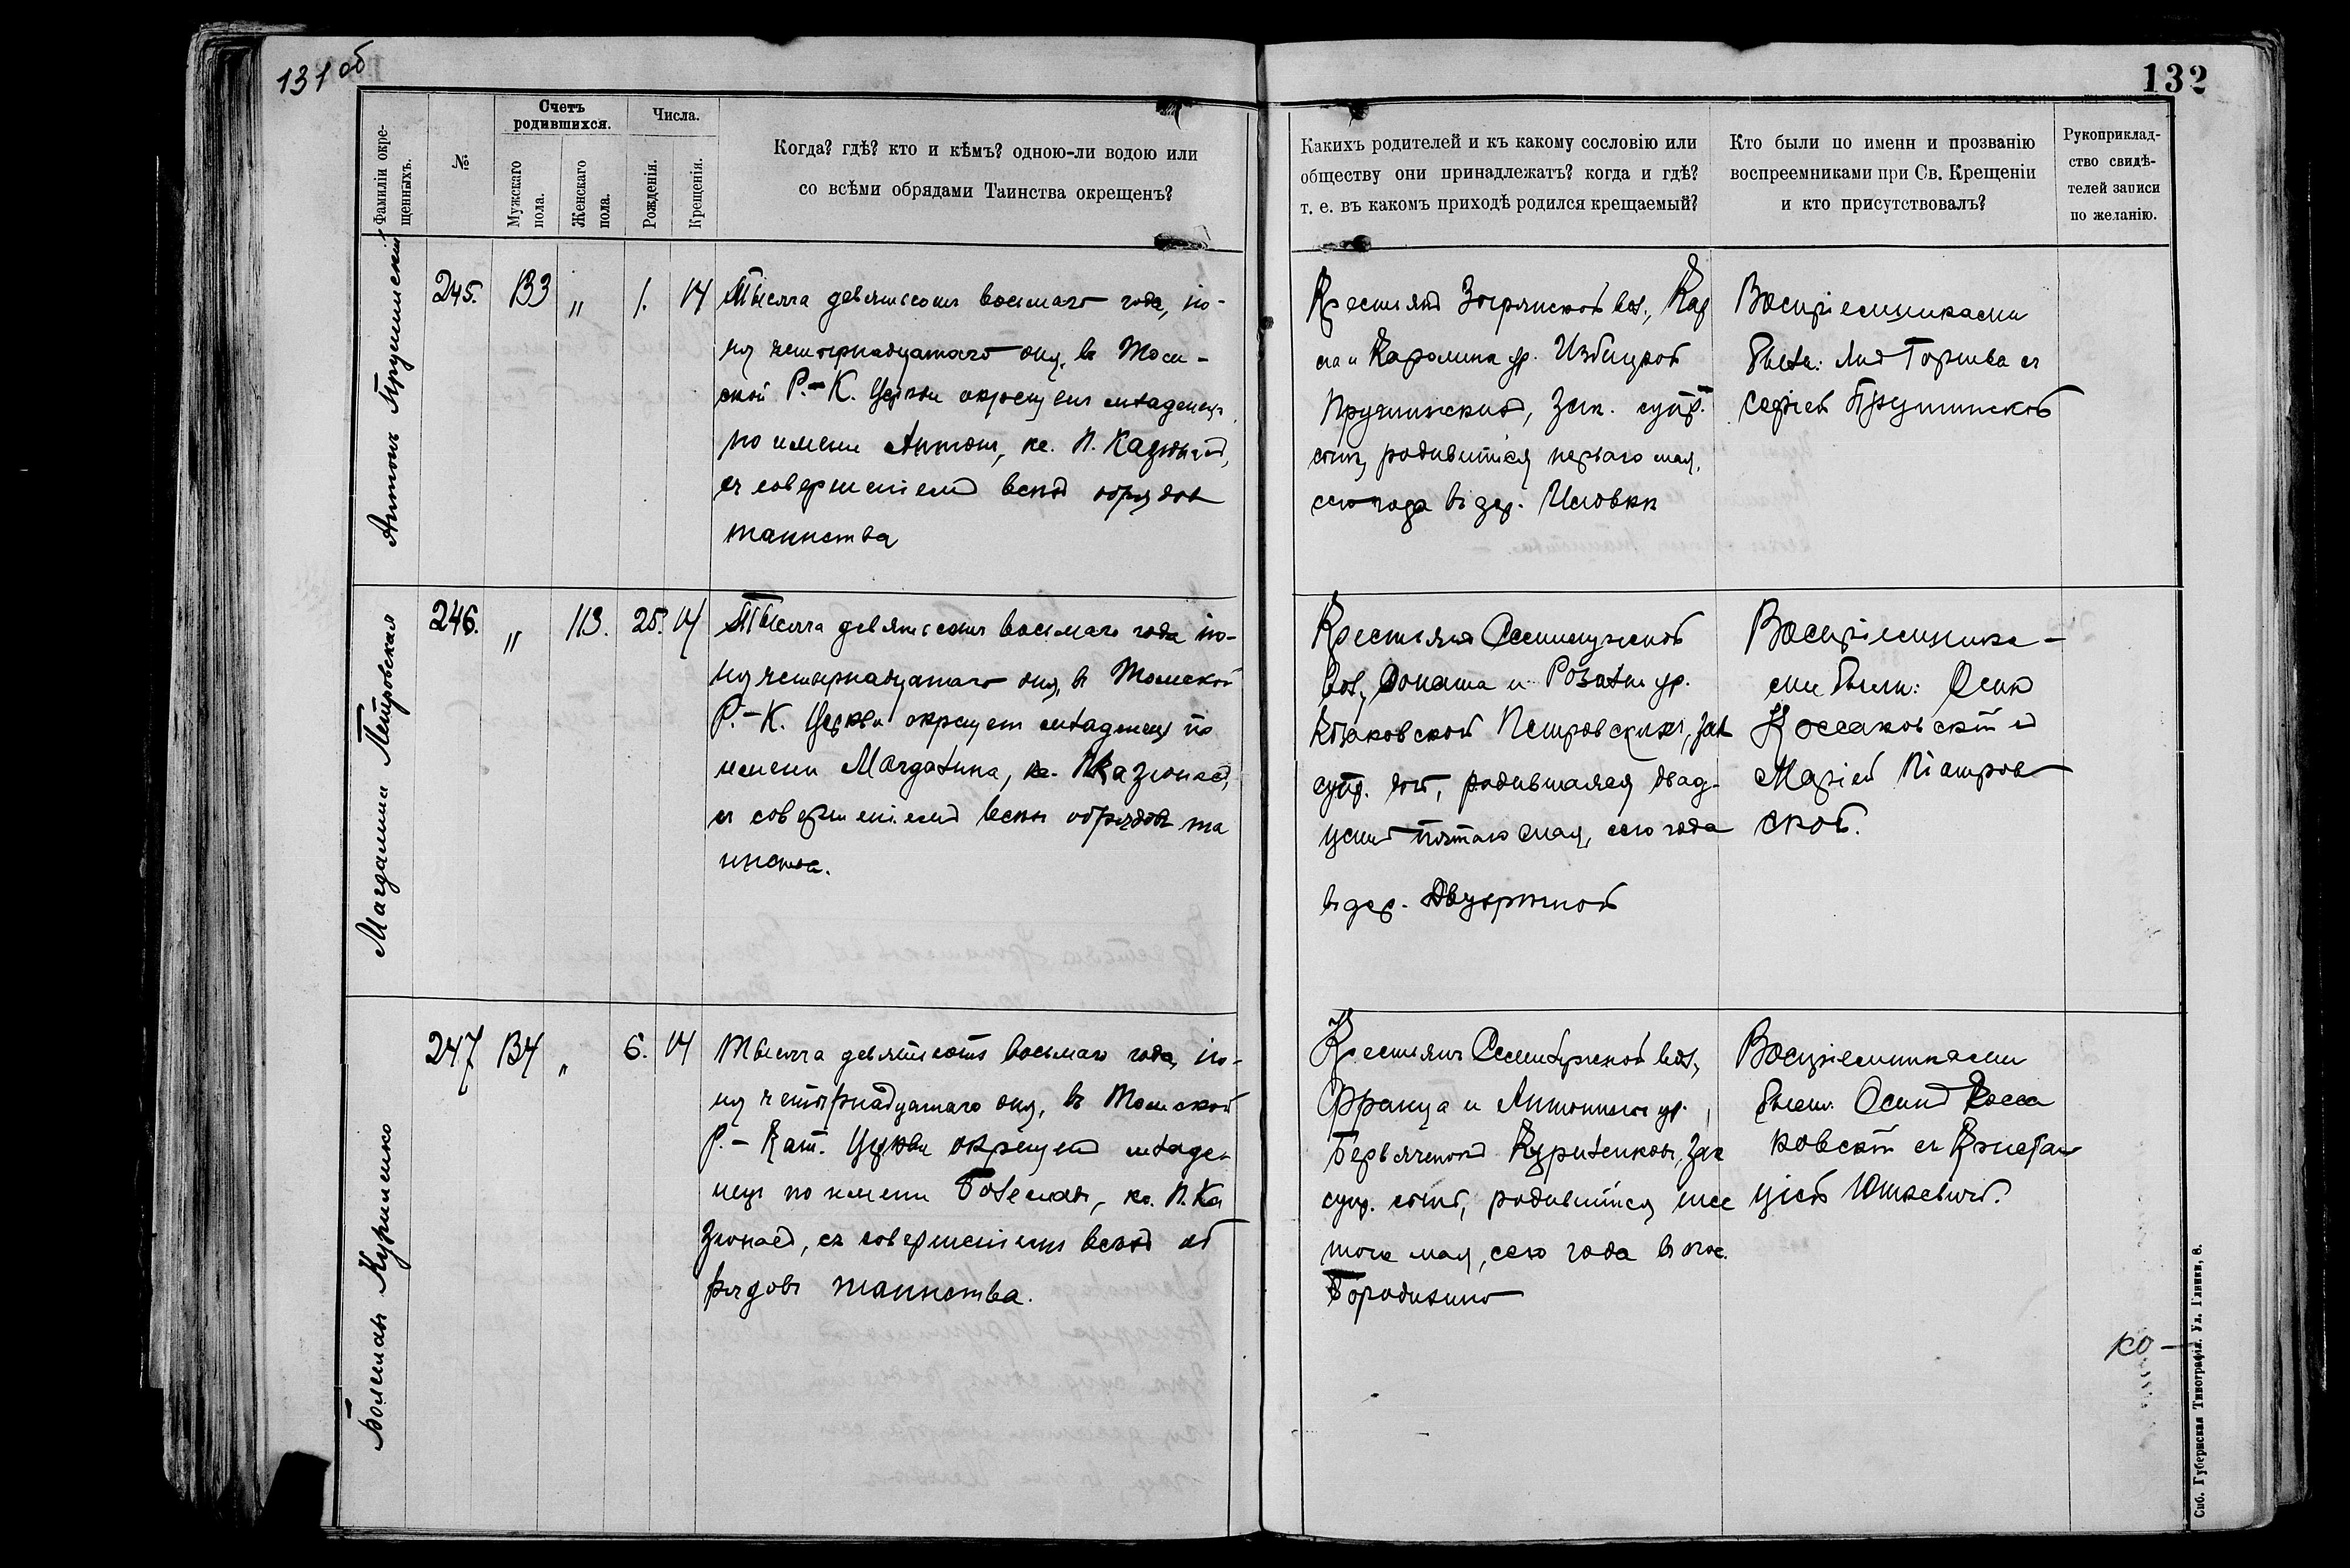 131 об
132
Фамиліи окре-
щенныхъ.
№
Счетъ
родившихся.
Мужскаго
пола.
Женскаго
пола.
Числа.
Рожденія.
Крещенія.
Когда? гдѣ? кто и кѣмъ? одною-ли водою или
со всѣми обрядами Таинства окрещенъ?
Какихъ родителей и къ какому сословію или
обществу они принадлежатъ? когда и гдѣ?
т. е. въ какомъ приходѣ родился крещаемый?
Кто были по имени и прозванію
воспреемниками при Св. Крещеніи
и кто присутствовалъ?
Рукоприклад-
ство свидѣ-
телей записи
по желанію.
Антонъ Прушинскій
245.
133
"
1.
14
Тысяча девятьсотъ восьмаго года, ію-
ня четырнадцатаго дня, въ Том-
ской Р.-К. Церкви окрещенъ младенецъ
по имени Антонъ, кс. П. Казюнасъ,
съ совершеніемъ всѣхъ обрядовъ
таинства
Крестьянъ Зырянской вол.,
и Каролины ур. Избицкой
Прушинскихъ, зак. супр.
сынъ, родившійся перваго мая,
сего года въ дер.
Воспріемниками
были:
Прушинской
Магдалина Петровская
246.
"
113.
25.
14
Тысяча девятьсотъ восьмаго года ію-
ня четырнадцатаго дня, въ Томской
Р.-К. Церкви окрещенъ младенецъ по
имени Магдалина, кс. П. Казюнасъ,
съ совершеніемъ всѣхъ обрядовъ та
инства.
Крестьянъ
вол., Доната и Розаліи ур.
Петровскихъ, зак
супр. дочь, родившаяся двад-
цать пятаго мая, сего года
въ дер. Двурѣчной
Воспріемника-
ми были: Осипъ
Коссаковскій и
Марія Піотров
ской.
Болеславъ Куриленко
247
134
"
6.
14
Тысяча девятьсотъ восьмаго года, ію-
ня четырнадцатаго дня, въ Томской
Р.-Кат. Церкви окрещенъ младе-
нецъ по имени Болеславъ, кс. П. Ка
зюнасъ, съ совершеніемъ всѣхъ об
рядовъ таинства.
Крестьянъ Семилужской вол.,
Франца и Антонины ур.
Куриленковъ, зак
супр. сынъ, родившійся шес
таго мая, сего года въ пос.
Бородинано
Воспріемниками
были: Осипъ Косса
ковскій съ Констан
ціей Юшкевичъ.
ко -
Спб. Губернская Типографія. Ул. Глинки, 8.